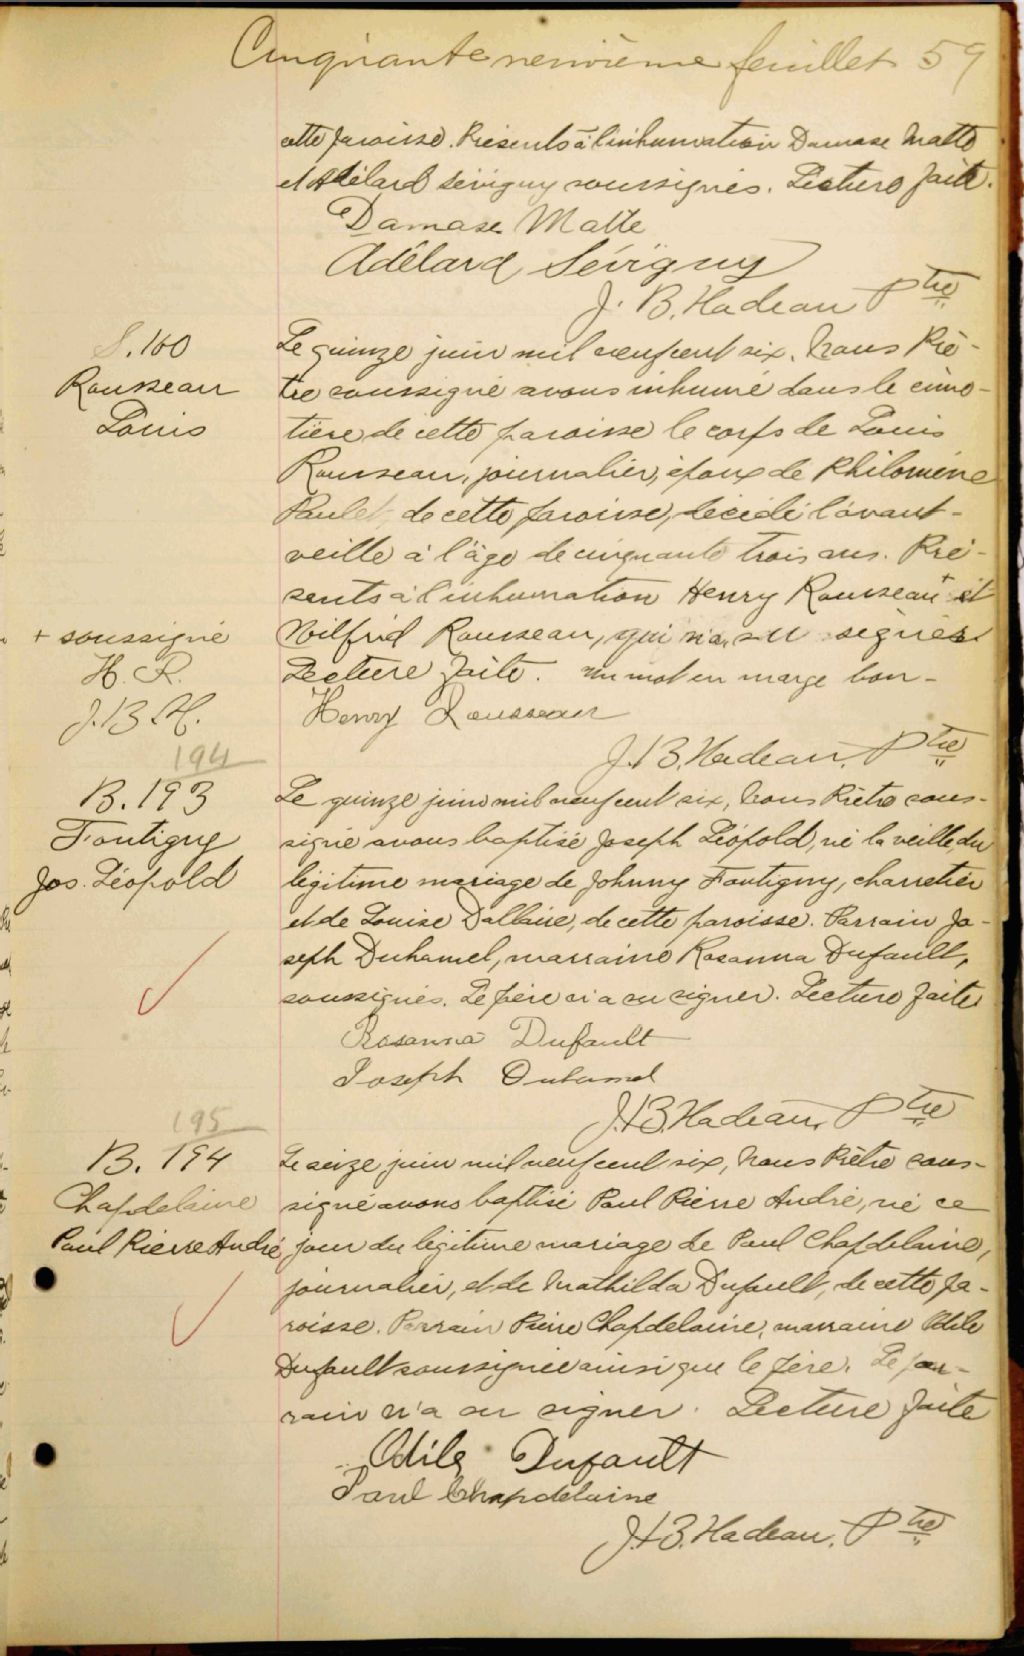 Cinquante neuvième feuillet 59
cette paroisse. Présents à l'inhumation Damase Matte
et Adélard Sévigny soussignés. Lecture faite.
Damase Matte
Adélard Sévigny
J. B. Nadeau, Ptre
S. 100
Rousseau
Louis
Le quinze juin mil neuf cent six, Nous Prê-
tre soussigné avons inhumé dans le cime-
tière de cette paroisse le corps de Louis
Rousseau, journalier, époux de Philomène
Paulet, de cette paroisse, décédé l'avant-
veille à l'âge de cinquante trois ans. Pré-
sents à l'inhumation Henry Rousseau + et
Wilfrid Rousseau, qui n'a su signer
Lecture faite. Un mot en marge bon-
+ soussigné
H. R.
J. B. N.
Henry Rousseau
J. B. Nadeau, Ptre
194
B. 193
Fontigny
Jos. Léopold
Le quinze juin mil neuf cent six, Nous Prêtre sous-
signé avons baptisé Joseph Léopold, né la veille, du
légitime mariage de Johnny Fontigny, charretier
et de Louise Dallaire, de cette paroisse. Parrain Jo-
seph Duhamel, marraine Rosanna Dufault,
soussignés. Le père n'a su signer. Lecture faite
Rosanna Dufault
Joseph Duhamel
J. B. Nadeau, Ptre
195
B. 194
Chapdelaine
Paul Pierre André
Le seize juin mil neuf cent six, Nous Prêtre sous-
signé avons baptisé Paul Pierre André, né ce
jour du légitime mariage de Paul Chapdelaine,
journalier, et de Mathilda Dufault, de cette pa-
roisse. Parrain Pierre Chapdelaine, marraine Odile
Dufault soussignée ainsi que le père. Le par-
rain n'a su signer. Lecture faite
Odile Dufault
Paul Chapdelaine
J. B. Nadeau, Ptre